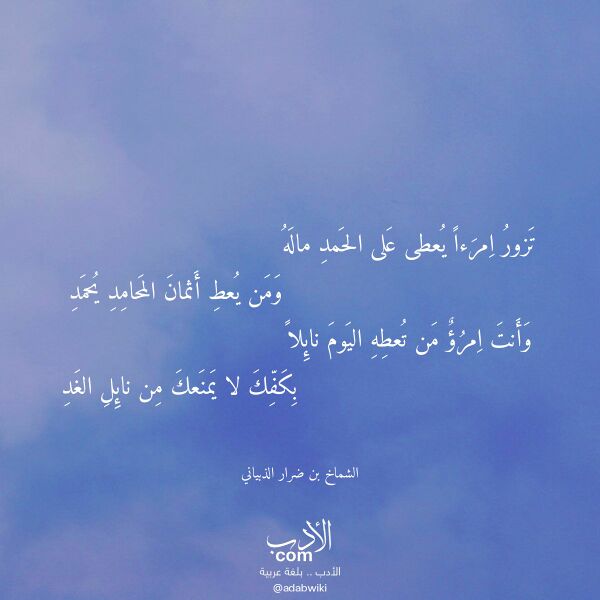 تَزورُ اِمرَءاً يُعطى عَلى الحَمدِ مالَهُ
وَمَن يُعطِ أَثمانَ المَحامِدِ يُحمَدِ
وَأَنتَ اِمرُؤٌ مَن تُعطِهِ اليَومَ نائِلاً
بِكَفِّكَ لا يَمنَعكَ مِن نائِلِ الغَدِ
الشماخ بن ضرار الذبياني
الأدب
com
الأدب .. بلغة عربية
@adabwiki